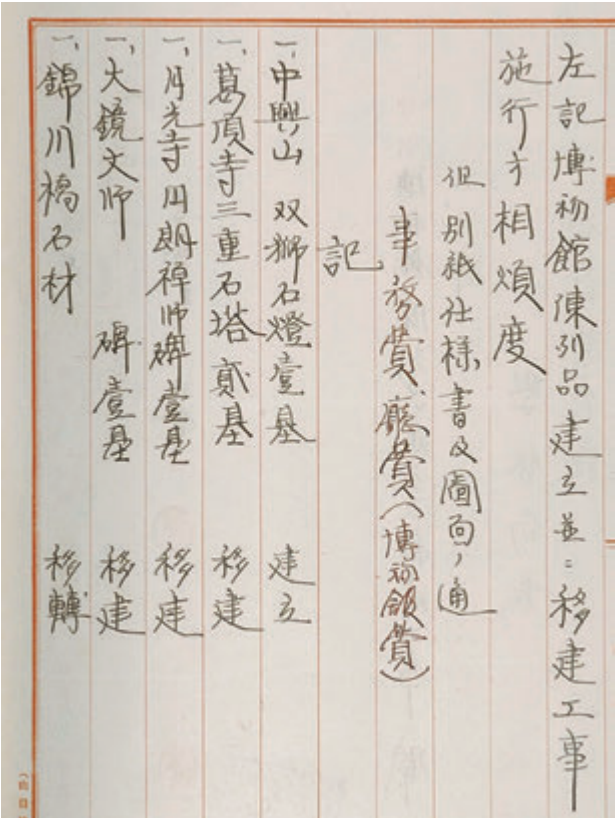 左記博物館陳列品建立並ニ移建工事
施行方相煩度
但別紙仕様書及圖面ノ通
事務費、廳費(博物館費)
記
一、中興山 双獅石燈壹基 建立
一、葛項寺三重石塔貳基 移建
一、月光寺円朗禅師碑壹基 移建
一、大鏡大師 碑壹基 移建
一、錦川橋石材 移轉